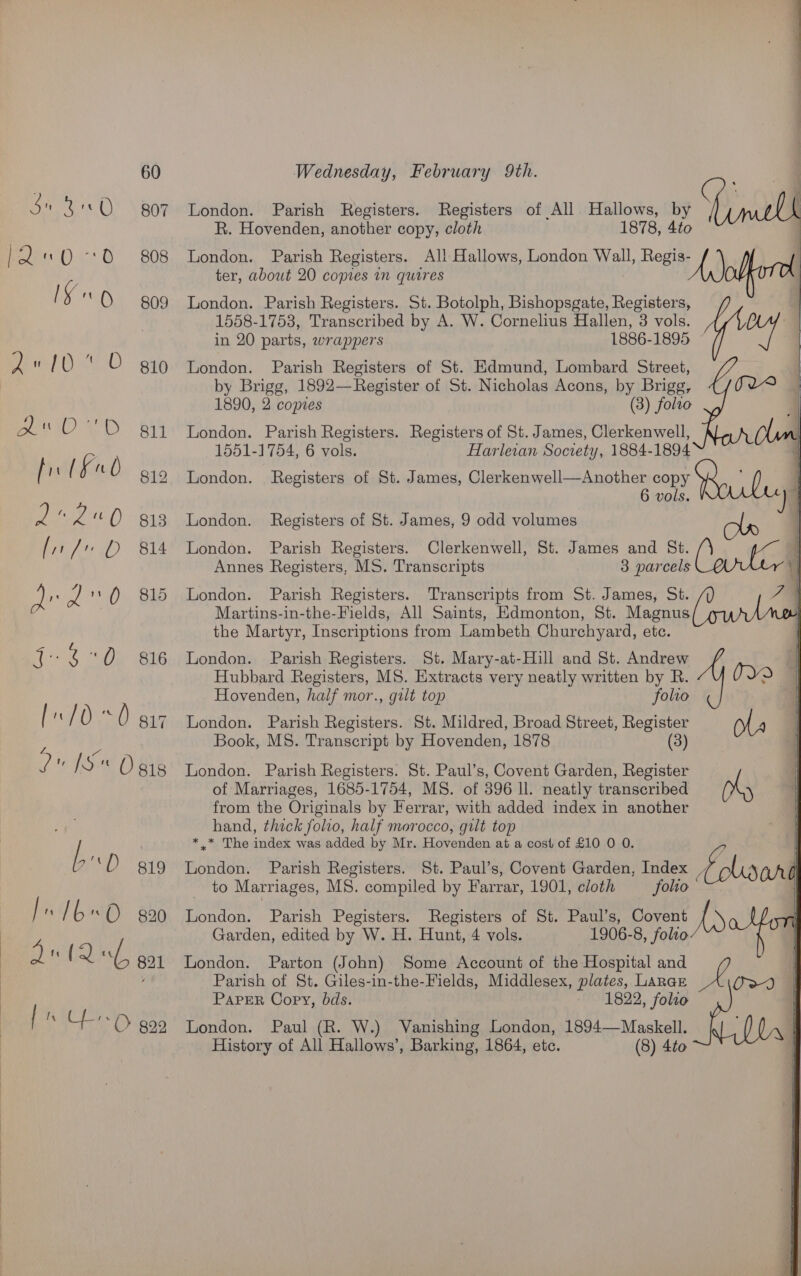 60 Wednesday, February 9th.
3 " 3 " 0 807 London. Parish Registers. Registers of All Hallows, by
R. Hovenden, another copy, cloth 1878, 4to
12 " 0 " 0 808 London. Parish Registers. All Hallows, London Wall, Regis- Walford
ter, about 20 copies in quires
18 " 0 809 London. Parish Registers. St. Botolph, Bishopsgate, Registers,
1558-1753, Transcribed by A. W. Cornelius Hallen, 3 vols. Gray
in 20 parts, wrappers 1886-1895
2 " 10 " 0 810 London. Parish Registers of St. Edmund, Lombard Street,
by Brigg, 1892—Register of St. Nicholas Acons, by Brigg,
1890, 2 copies (3) folio
2 " 0 " 0 811 London. Parish Registers. Registers of St. James, Clerkenwell, Harding
1551-1754, 6 vols. Harleian Society, 1884-1894
1 " 18 " 0 812 London. Registers of St. James, Clerkenwell—Another copy
6 vols.
2 " 2 " 0 813 London. Registers of St. James, 9 odd volumes do
1 " 1 " 0 814 London. Parish Registers. Clerkenwell, St. James and St.
Annes Registers, MS. Transcripts 3 parcels Carter
2 " 2 " 0 815 London. Parish Registers. Transcripts from St. James, St.
Martins-in-the-Fields, All Saints, Edmonton, St. Magnus
the Martyr, Inscriptions from Lambeth Churchyard, etc.
1 " 8 " 0 816 London. Parish Registers. St. Mary-at-Hill and St. Andrew
Hubbard Registers, MS. Extracts very neatly written by R.
Hovenden, half mor., gilt top folio
1 " 10 " 0 817 London. Parish Registers. St. Mildred, Broad Street, Register do
Book, MS. Transcript by Hovenden, 1878 (3)
2 " 15 " 0 818 London. Parish Registers. St. Paul's, Covent Garden, Register
of Marriages, 1685-1754, MS. of 396 ll. neatly transcribed do
from the Originals by Ferrar, with added index in another
hand, thick folio, half morocco, gilt top
*.* The index was added by Mr. Hovenden at a cost of £10 0 0.
6 " 0 819 London. Parish Registers. St. Paul's, Covent Garden, Index
to Marriages, MS. compiled by Farrar, 1901, cloth folio
1 " 16 " 0 820 London. Parish Pegisters. Registers of St. Paul's, Covent Walford
Garden, edited by W. H. Hunt, 4 vols. 1906-8, folio
2 " 12 " 6 821 London. Parton (John) Some Account of the Hospital and
Parish of St. Giles-in-the-Fields, Middlesex, plates, LARGE
PAPER COPY, bds. 1822, folio
1 " 4 " 0 822 London. Paul (R. W.) Vanishing London, 1894—Maskell.
History of All Hallows', Barking, 1864, etc. (8) 4to